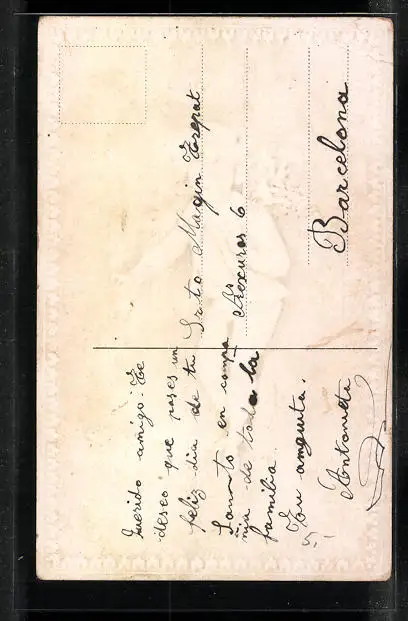 Querido amigo: Te
deseo que pases un
feliz dia de tu
Santo en compa
ñia de toda la
familia.
Tu amguita.
Antonieta
5.-
Srto Magin Trepat
6
Barcelona